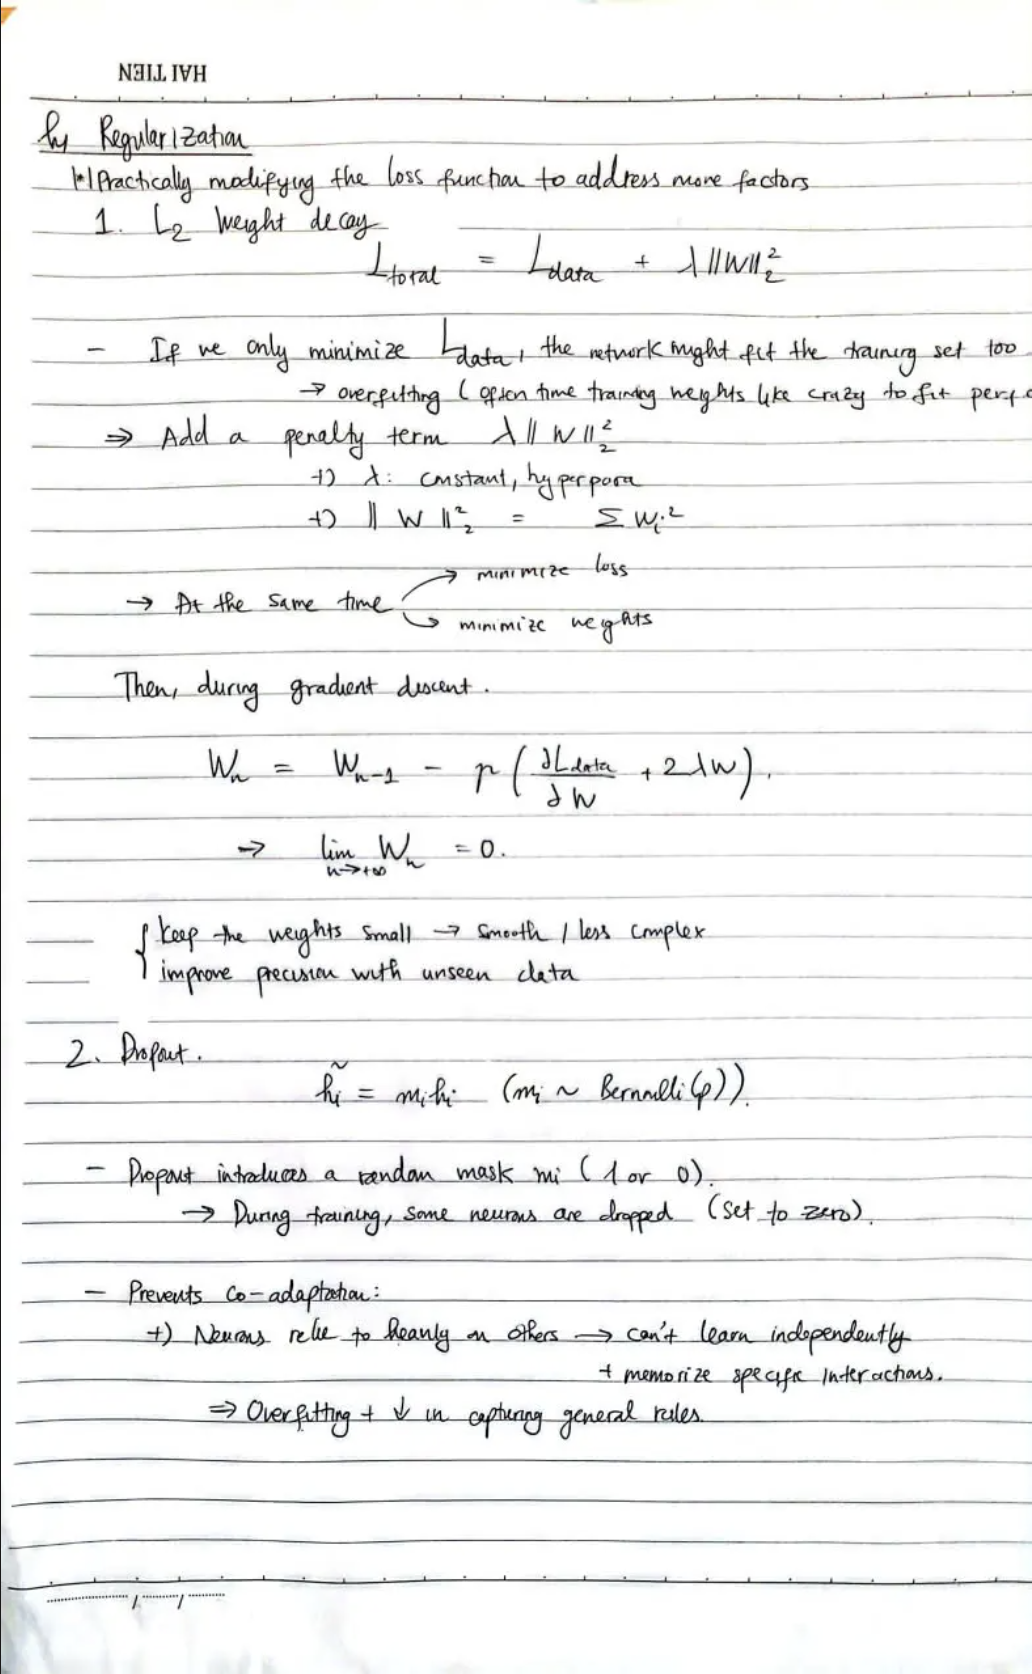 HAI TIEN
h, Regularization
|*| Practically modifying the loss function to address more factors
1. L₂ Weight decay
L_total = L_data + λ||W||₂²
- If we only minimize L_data, the network might fit the training set too
→ overfitting ( often time training weights like crazy to fit perfe
⇒ Add a penalty term λ||W||₂²
+) λ: constant, hyperpara
+) ||W||₂² = Σ Wᵢ²
→ At the same time → minimize loss
→ minimize weights
Then, during gradient descent.
Wₙ = Wₙ₋₁ - η (∂L_data/∂W + 2λW).
→ lim Wₙ = 0.
n→+∞
{ keep the weights small → smooth / less complex
improve precision with unseen data
2. Dropout.
h̃ᵢ = mᵢhᵢ (mᵢ ~ Bernoulli(p)).
- Dropout introduces a random mask mi (1 or 0).
→ During training, some neurons are dropped (set to zero).
- Prevents co-adaptation:
+) Neurons relie to heavily on others → can't learn independently
+ memorize specific interactions.
⇒ Overfitting + ↓ in capturing general rules.